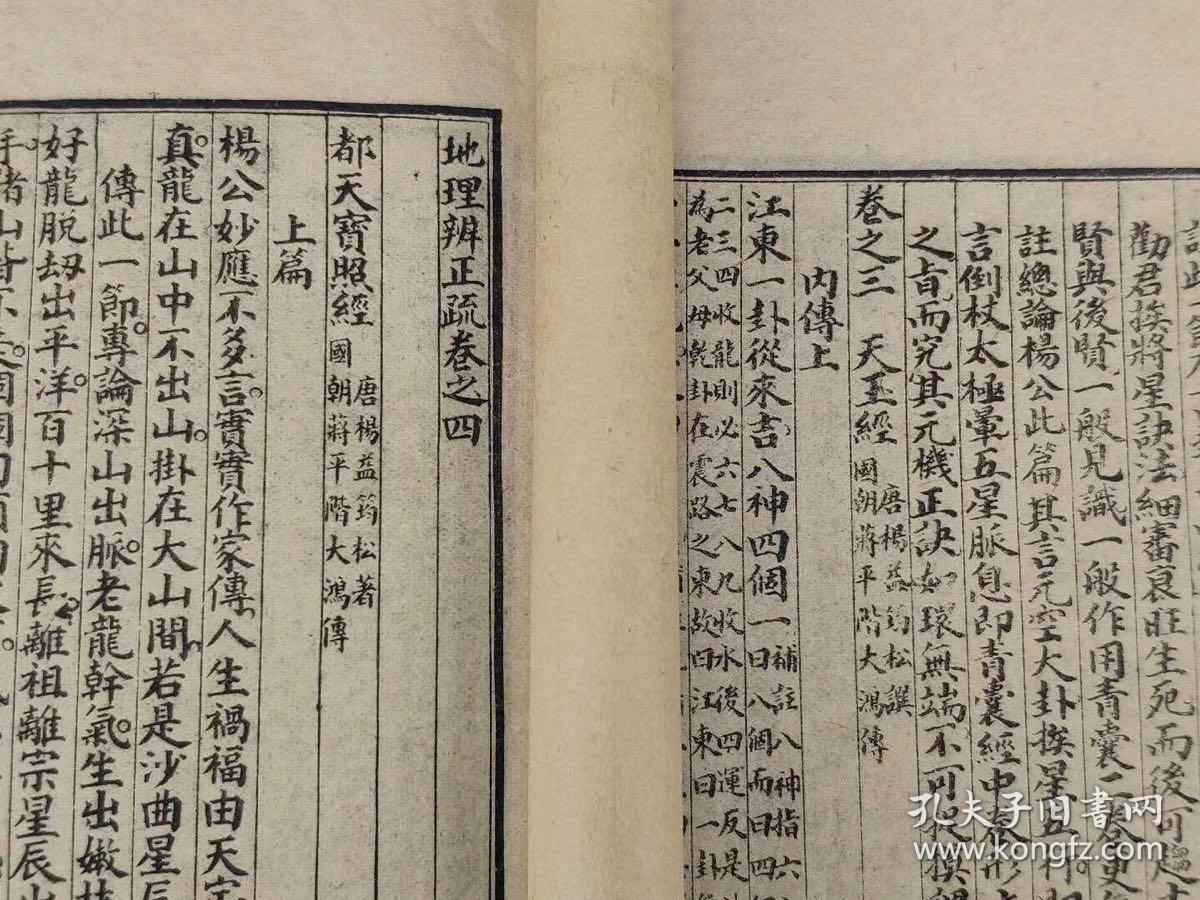 勸君挨將星訣法細審衰旺生死而後可趨
賢與後賢一般見識一般作用青囊二卷更
註總論楊公此篇其言元空大卦挨星五行
言倒杖太極暈五星脈息即青囊經中卷形
之旨而究其元機正訣如環無端不可捉摸
卷之三　天玉經
唐楊益筠松譔
國朝蔣平階大鴻傳
內傳上
江東一卦從來吉八神四個一
補註八神指六
曰八個而曰四
二三四收龍則必六七八九收水後四運反是
為老父母乾卦在震路之東故曰江東曰一卦
地理辨正疏卷之四
都天寶照經
唐楊益筠松著
國朝蔣平階大鴻傳
上篇
楊公妙應不多言。實實作家傳。人生禍福由天定
真。龍在山中不出山。掛在大山間。若是沙曲星辰
傳此一節。專論深山出脈。老龍幹氣。生出嫩枝
好龍脫劫出平洋。百十里來長。離祖離宗星辰出
孔夫子旧書网
www.kongfz.com